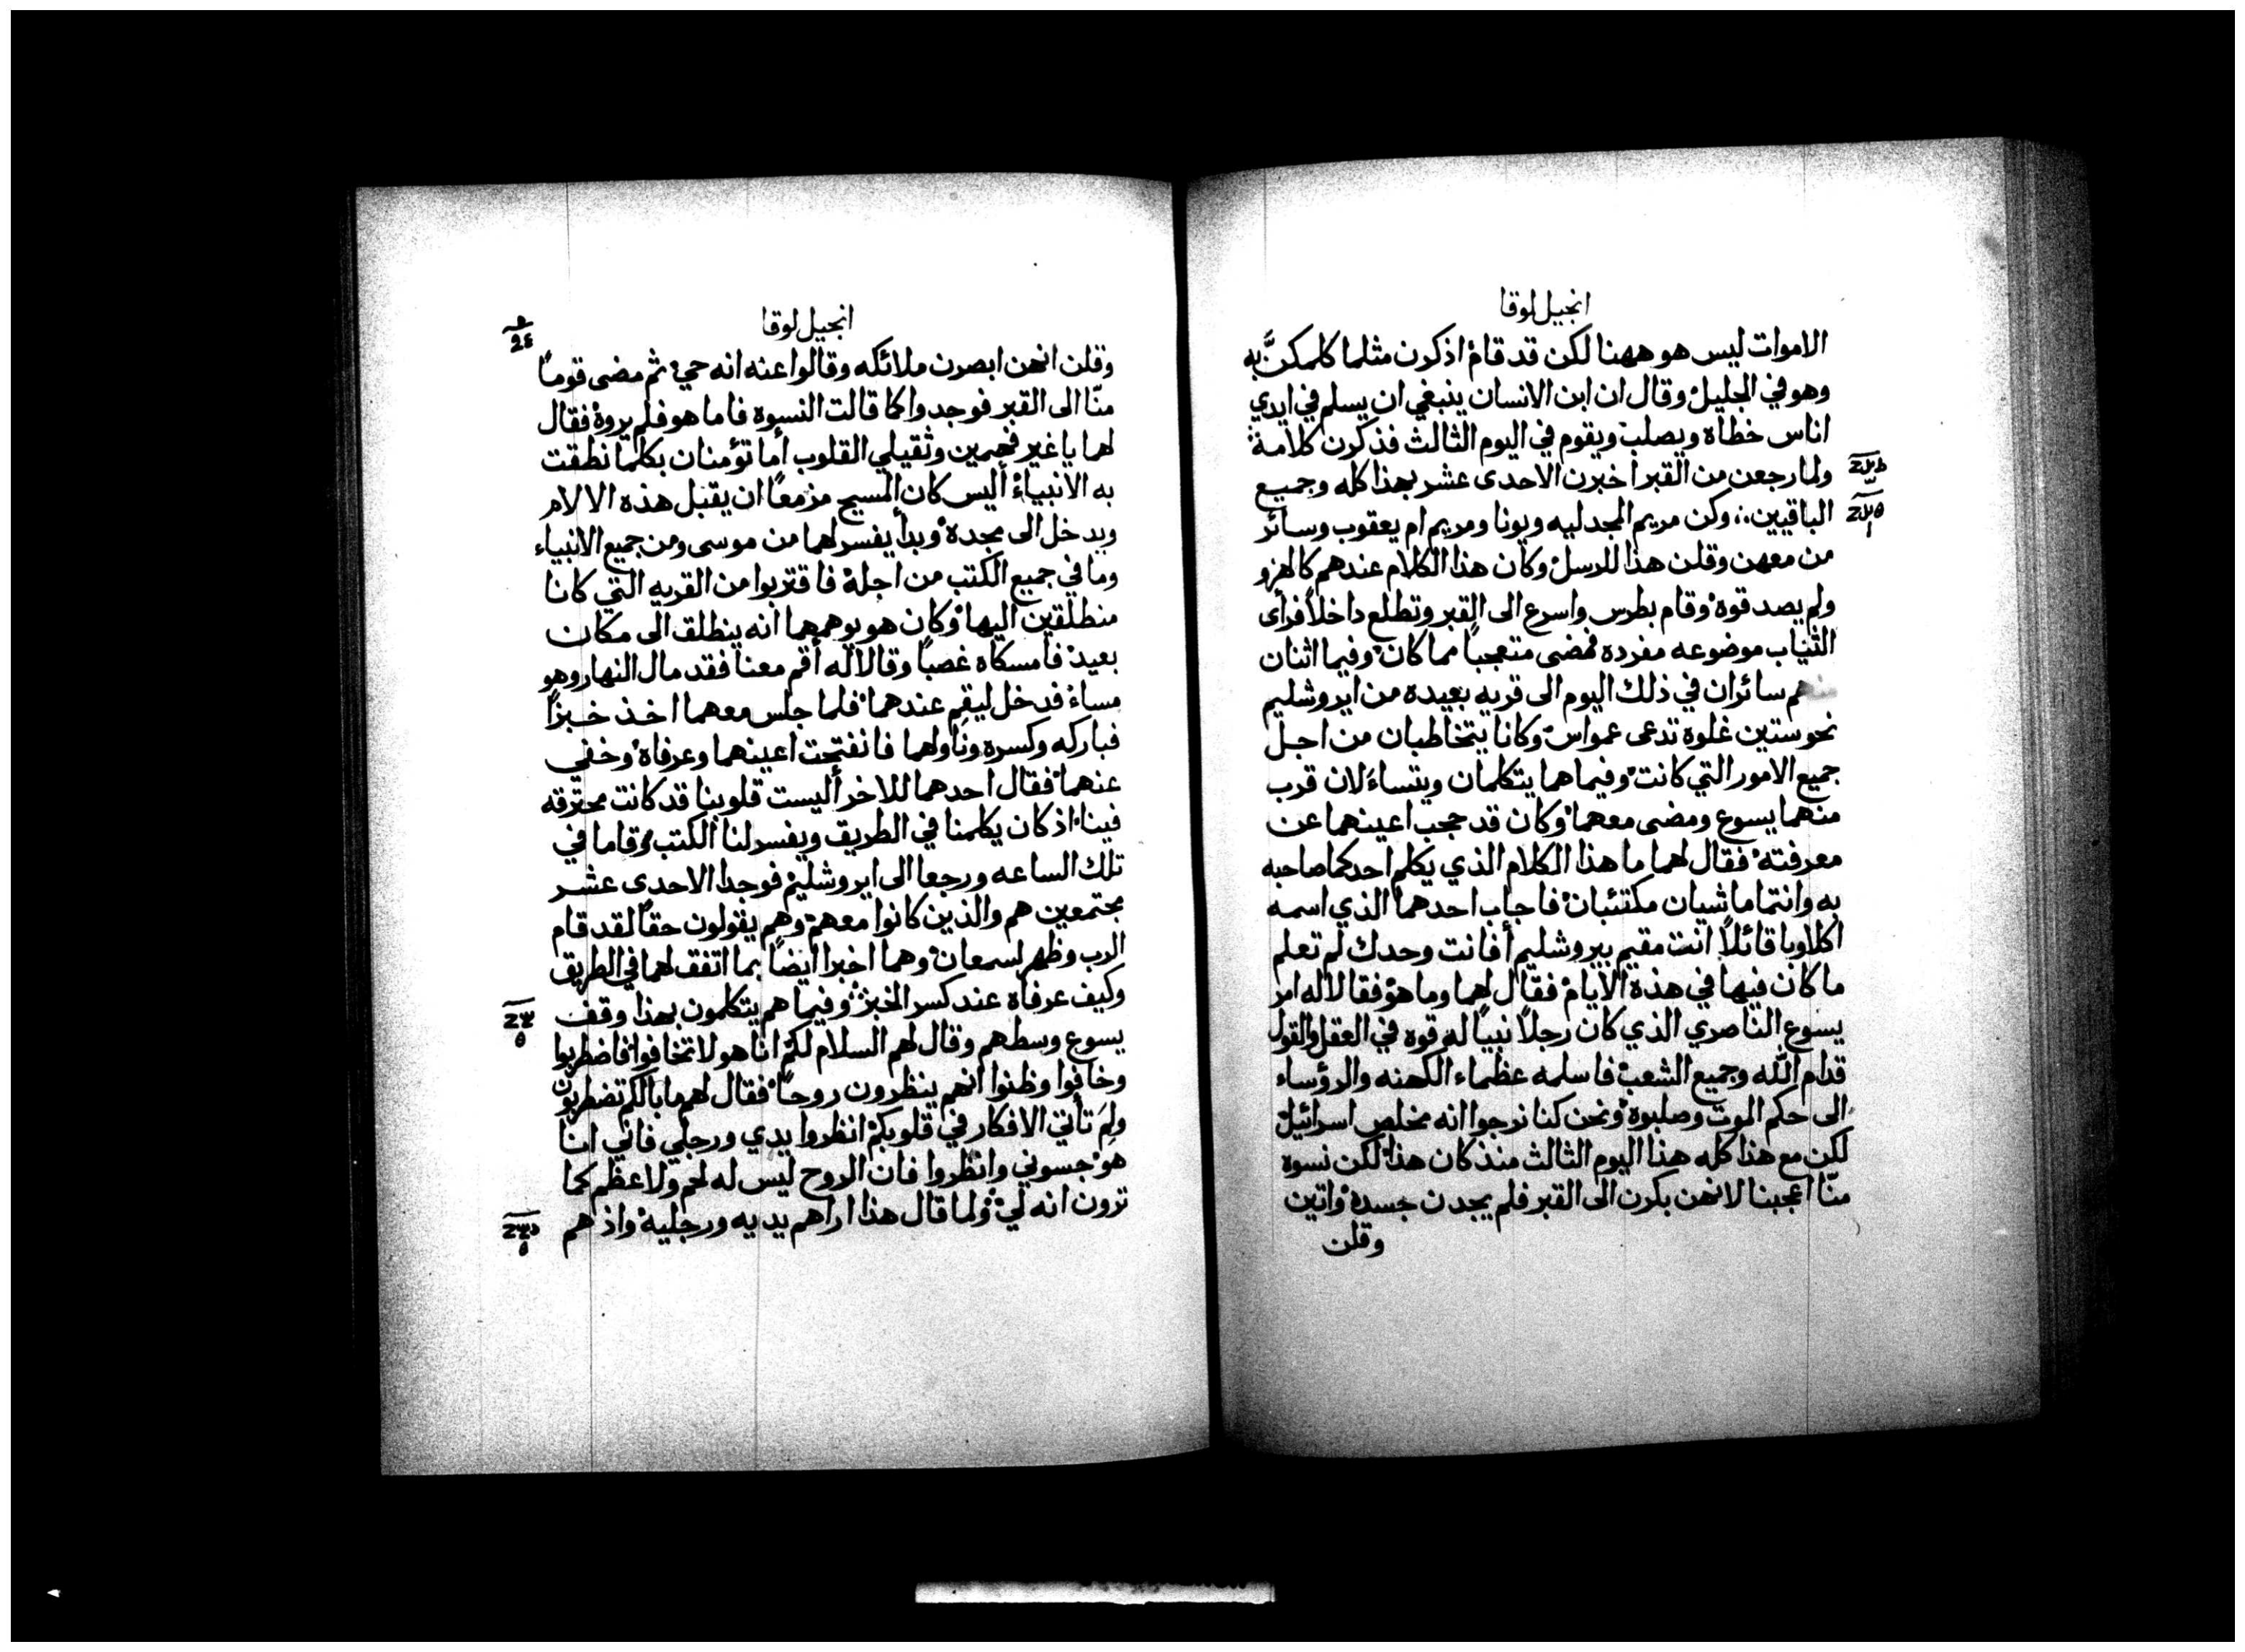 انجيل لوقا
الاموات ليس هو ههنا لكن قد قام اذكرن مثلما كلمكنَّ به
وهو في الجليل وقال ان ابن الانسان ينبغي ان يسلم في ايدي
اناس خطاه ويصلب ويقوم في اليوم الثالث فذكرن كلامه
ولما رجعن من القبر اخبرن الاحدى عشر بهذا كله وجميع
الباقيين وكن مريم المجدليه ويونا ومريم ام يعقوب وسائر
من معهن وقلن هذا للرسل وكان هذا الكلام عندهم كالهزو
ولم يصدقوه وقام بطرس واسرع الى القبر وتطلع داخلاً فرأى
الثياب موضوعه مفرده فمضى متعجباً مما كان وفيما اثنان
منهم سائران في ذلك اليوم الى قريه بعيده من ايروشليم
نحو ستين غلوة تدعى عمواس وكانا يتخاطبان من اجل
جميع الامور التي كانت وفيما هما يتكلمان ويتساءلان قرب
منهما يسوع ومضى معهما وكان قد حجب اعينهما عن
معرفته فقال لهما ما هذا الكلام الذي يكلم احدكما صاحبه
به وانتما ماشيان مكتئبان فاجاب احدهما الذي اسمه
اكلاوبا قائلاً انت مقيم بيروشليم أفانت وحدك لم تعلم
ما كان فيها في هذه الايام فقال لهما وما هو فقالا له امر
يسوع الناصري الذي كان رجلاً نبياً له قوه في العقل والقول
قدام الله وجميع الشعب فاسلمه عظماء الكهنه والرؤساء
الى حكم الموت وصلبوه ونحن كنا نرجوا انه مخلص اسرائيل
لكن مع هذا كله هذا اليوم الثالث منذ كان هذا لكن نسوه
منّا اعجبنا لانهن بكرن الى القبر فلم يجدن جسده واتين
وقلن
انجيل لوقا
وقلن انهن ابصرن ملائكه وقالوا عنه انه حي ثم مضى قوماً
منّا الى القبر فوجدوا كما قالت النسوه فاما هو فلم يروه فقال
لهما يا غير فهمين وثقيلي القلوب أما تؤمنان بكلما نطقت
به الانبياء أليس كان المسيح مزمعاً ان يقبل هذه الالام
ويدخل الى مجده وبدأ يفسر لهما من موسى ومن جميع الانبياء
وما في جميع الكتب من اجله فاقتربوا من القريه التي كانا
منطلقين اليها وكان هو يوهمهما انه ينطلق الى مكان
بعيد فامسكاه غصباً وقالا له أقم معنا فقد مال النهار وهو
مساء فدخل ليقم عندهما فلما جلس معهما اخذ خبزاً
فباركه وكسره وناولهما فانفتحت اعينهما وعرفاه وخفي
عنهما فقال احدهما للاخر أليست قلوبنا قد كانت محترقه
فينا اذ كان يكلمنا في الطريق ويفسر لنا الكتب وقاما في
تلك الساعه ورجعا الى ايروشليم فوجدا الاحدى عشر
مجتمعين هم والذين كانوا معهم وهم يقولون حقاً لقد قام
الرب وظهر لسمعان وهما اخبرا ايضاً بما اتفق لهما في الطريق
وكيف عرفاه عند كسر الخبز وفيما هم يتكلمون بهذا وقف
يسوع وسطهم وقال لهم السلام لكم انا هو لا تخافوا فاضطربوا
وخافوا وظنوا انهم ينظرون روحاً فقال لهم ما بالكم تضطربون
ولِمَ تأتي الافكار في قلوبكم انظروا يدي ورجلي فاني انا
هو جسوني وانظروا فان الروح ليس له لحم ولا عظم كما
ترون انه لي ولما قال هذا اراهم يديه ورجليه واذ هم